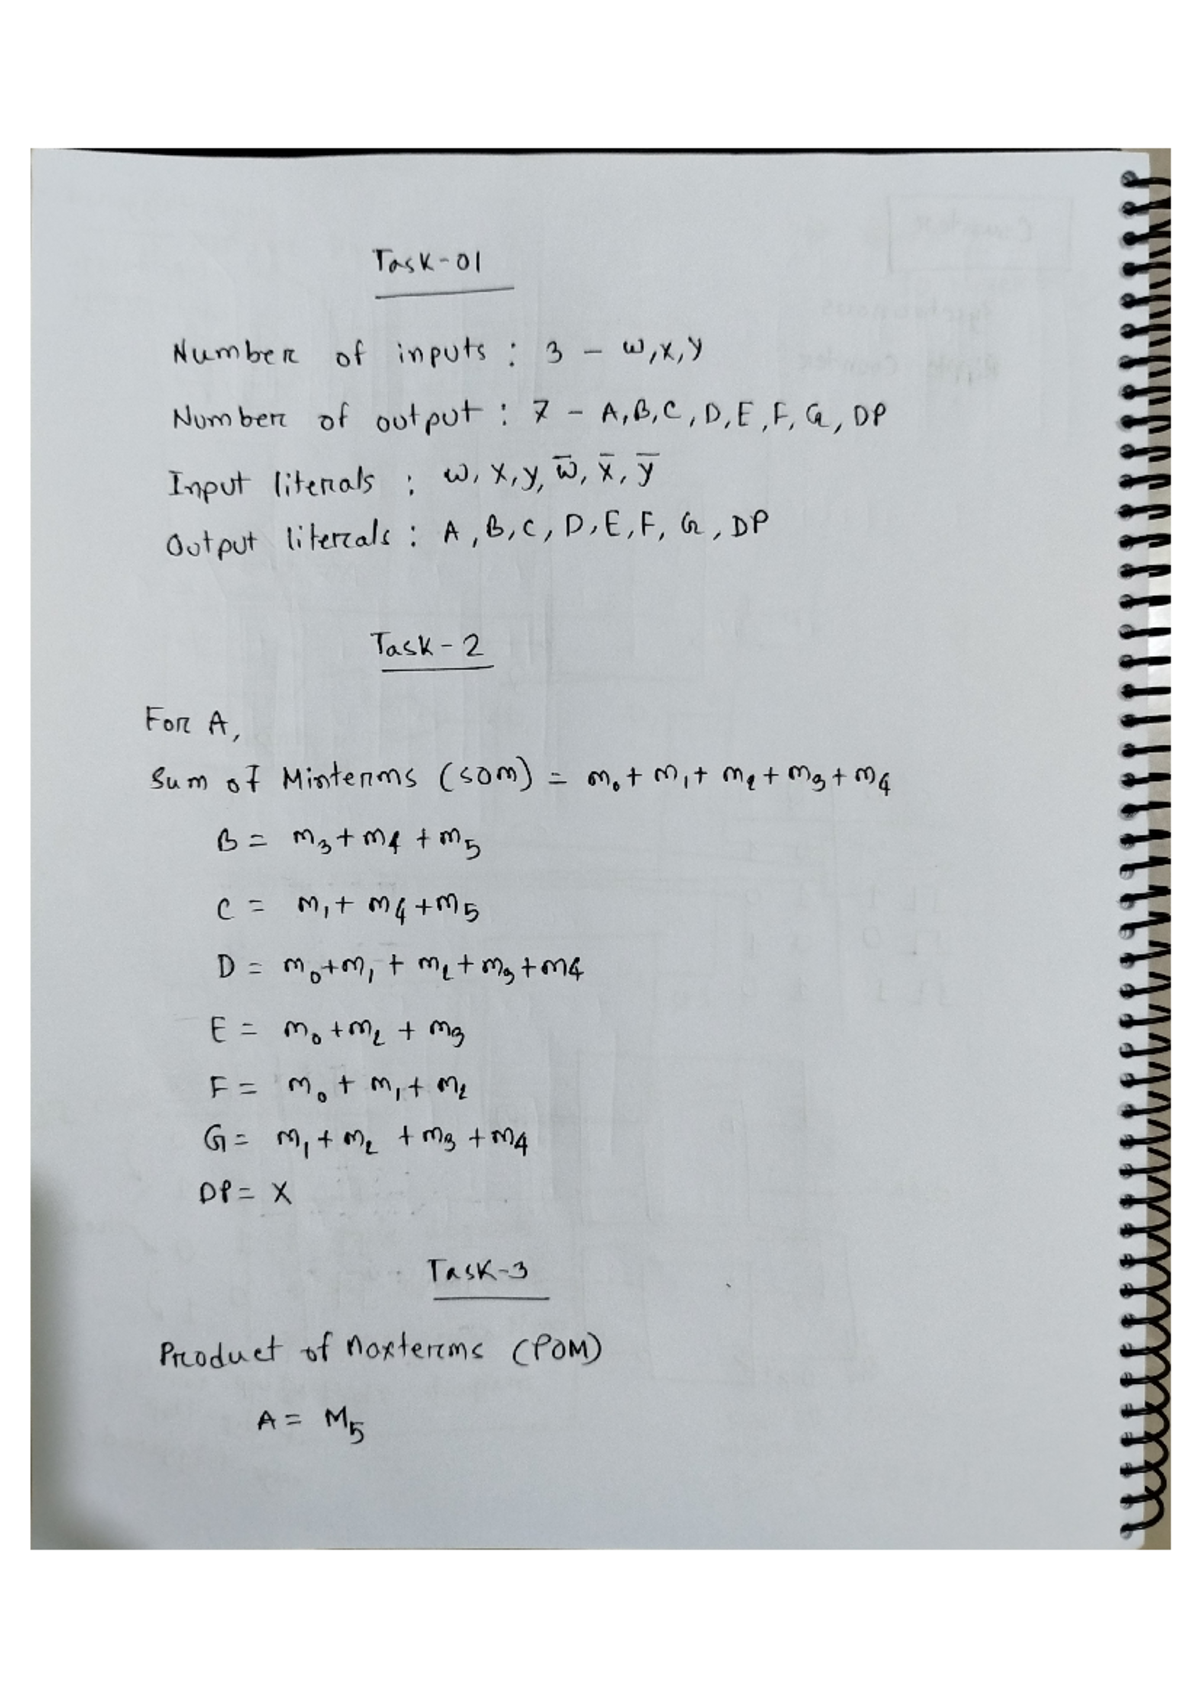 Task-01
Number of inputs : 3 - w,x,y
Number of output : 7 - A,B,C,D,E,F,G,DP
Input literals : w,x,y,w̅,x̅,y̅
Output literals : A,B,C,D,E,F,G,DP
Task-2
For A,
Sum of Minterms (SOM) = m₀+m₁+m₂+m₃+m₄
B = m₃+m₄+m₅
C = m₁+m₄+m₅
D = m₀+m₁+m₂+m₃+m₄
E = m₀+m₂+m₃
F = m₀+m₁+m₂
G = m₁+m₂+m₃+m₄
DP = X
Task-3
Product of Maxterms (POM)
A = M₅